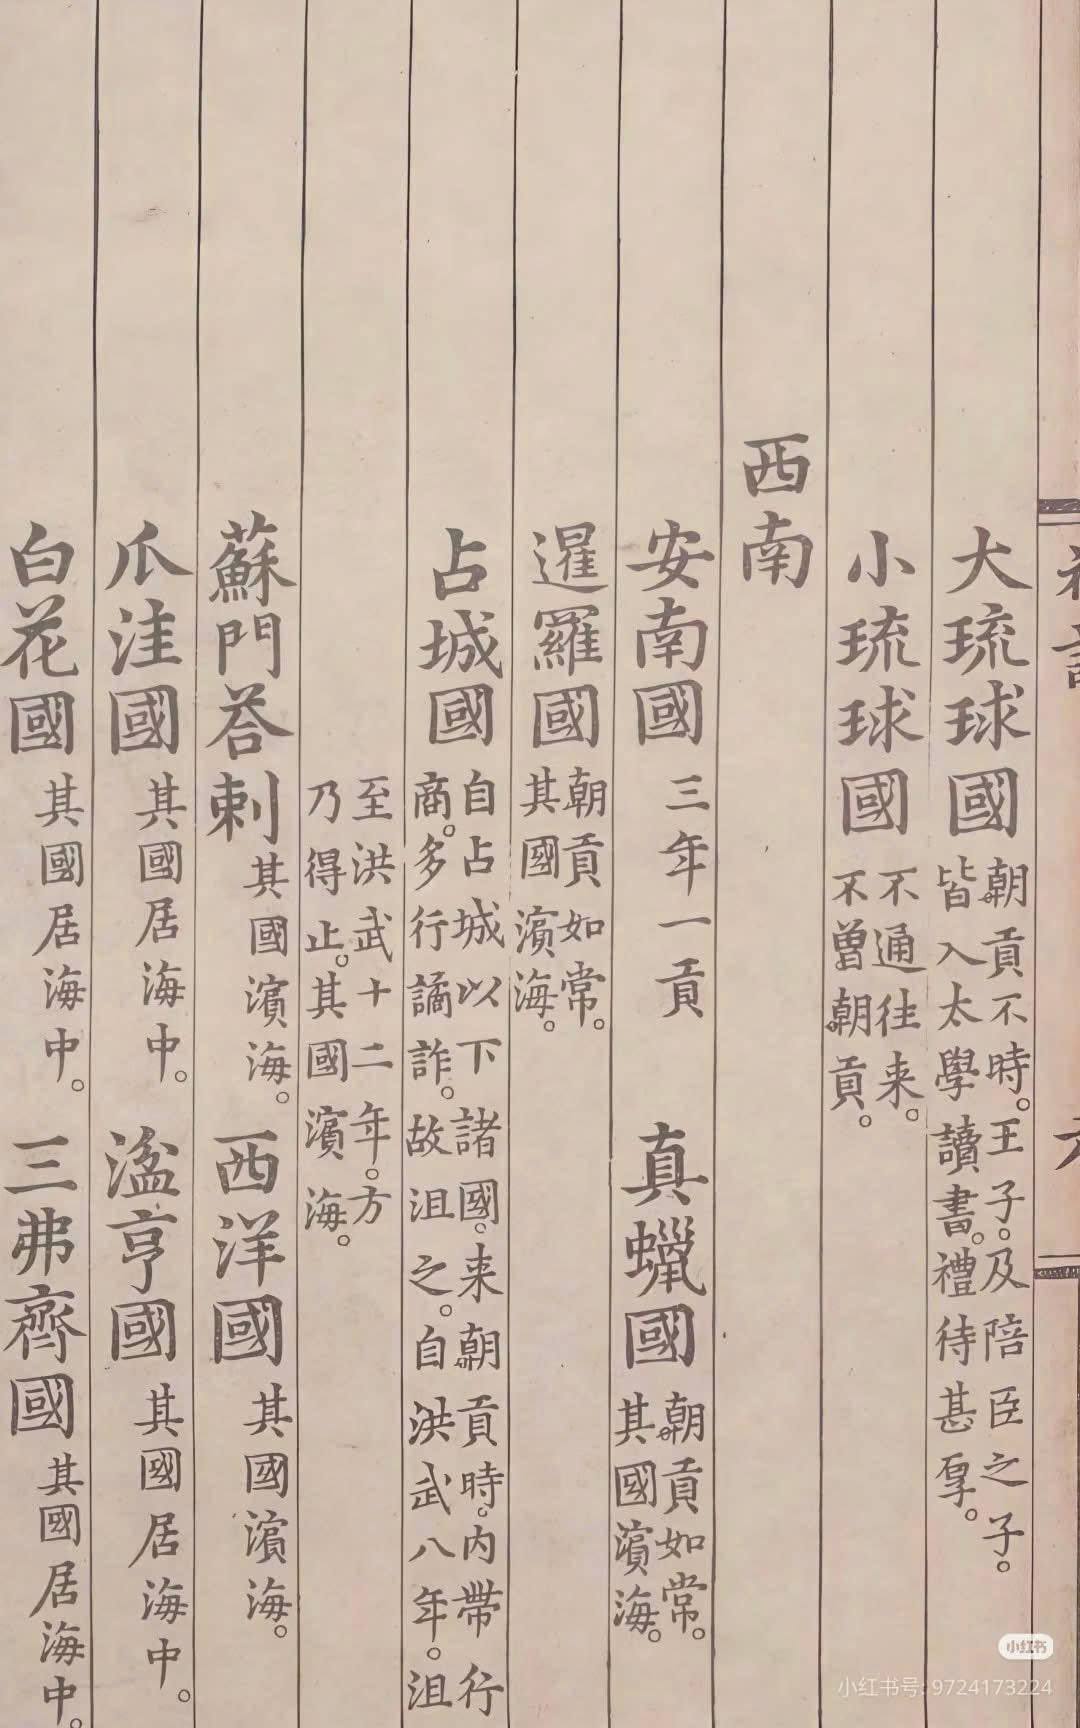 大琉球國
朝貢不時。王子。及陪臣之子。
皆入太學讀書。禮待甚厚。
小琉球國
不通往来。
不曾朝貢。
西南
安南國
三年一貢
真蠟國
朝貢如常。
其國濱海。
暹羅國
朝貢如常。
其國濱海。
占城國
自占城以下諸國。来朝貢時。内帶行
商。多行譎詐。故沮之。自洪武八年。沮
至洪武十二年。方
乃得止。其國濱海。
蘇門荅剌
其國濱海。
西洋國
其國濱海。
爪洼國
其國居海中。
湓亨國
其國居海中。
白花國
其國居海中。
三弗齊國
其國居海中。
小红书
小红书号:9724173224